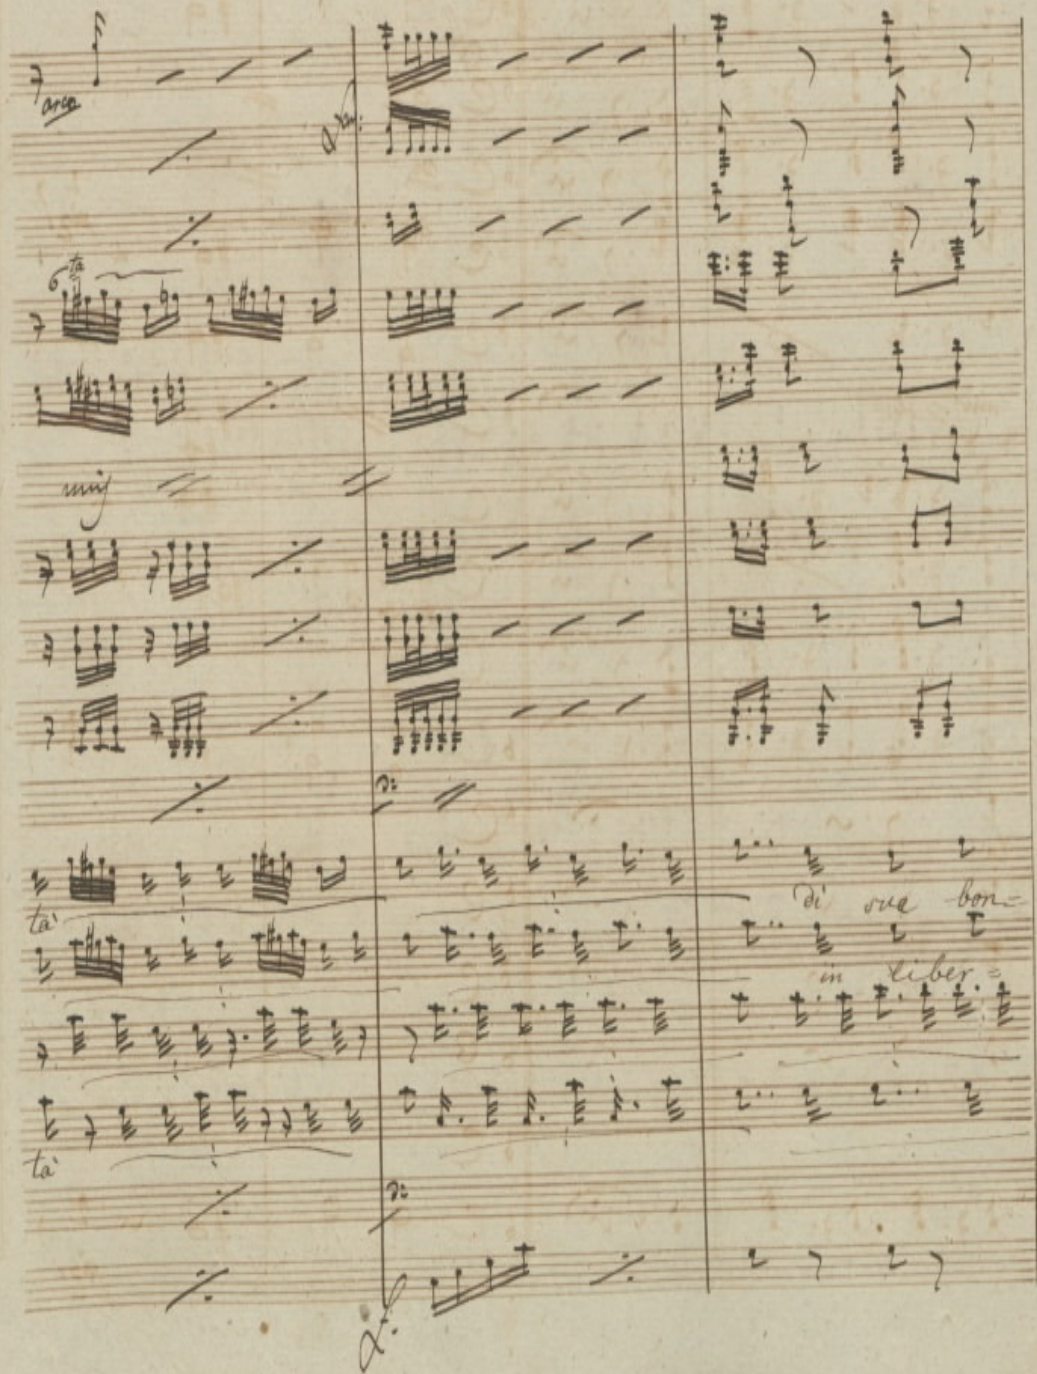 arco
6ta
unis
ta'
di sua bon=
in liber=
ta'